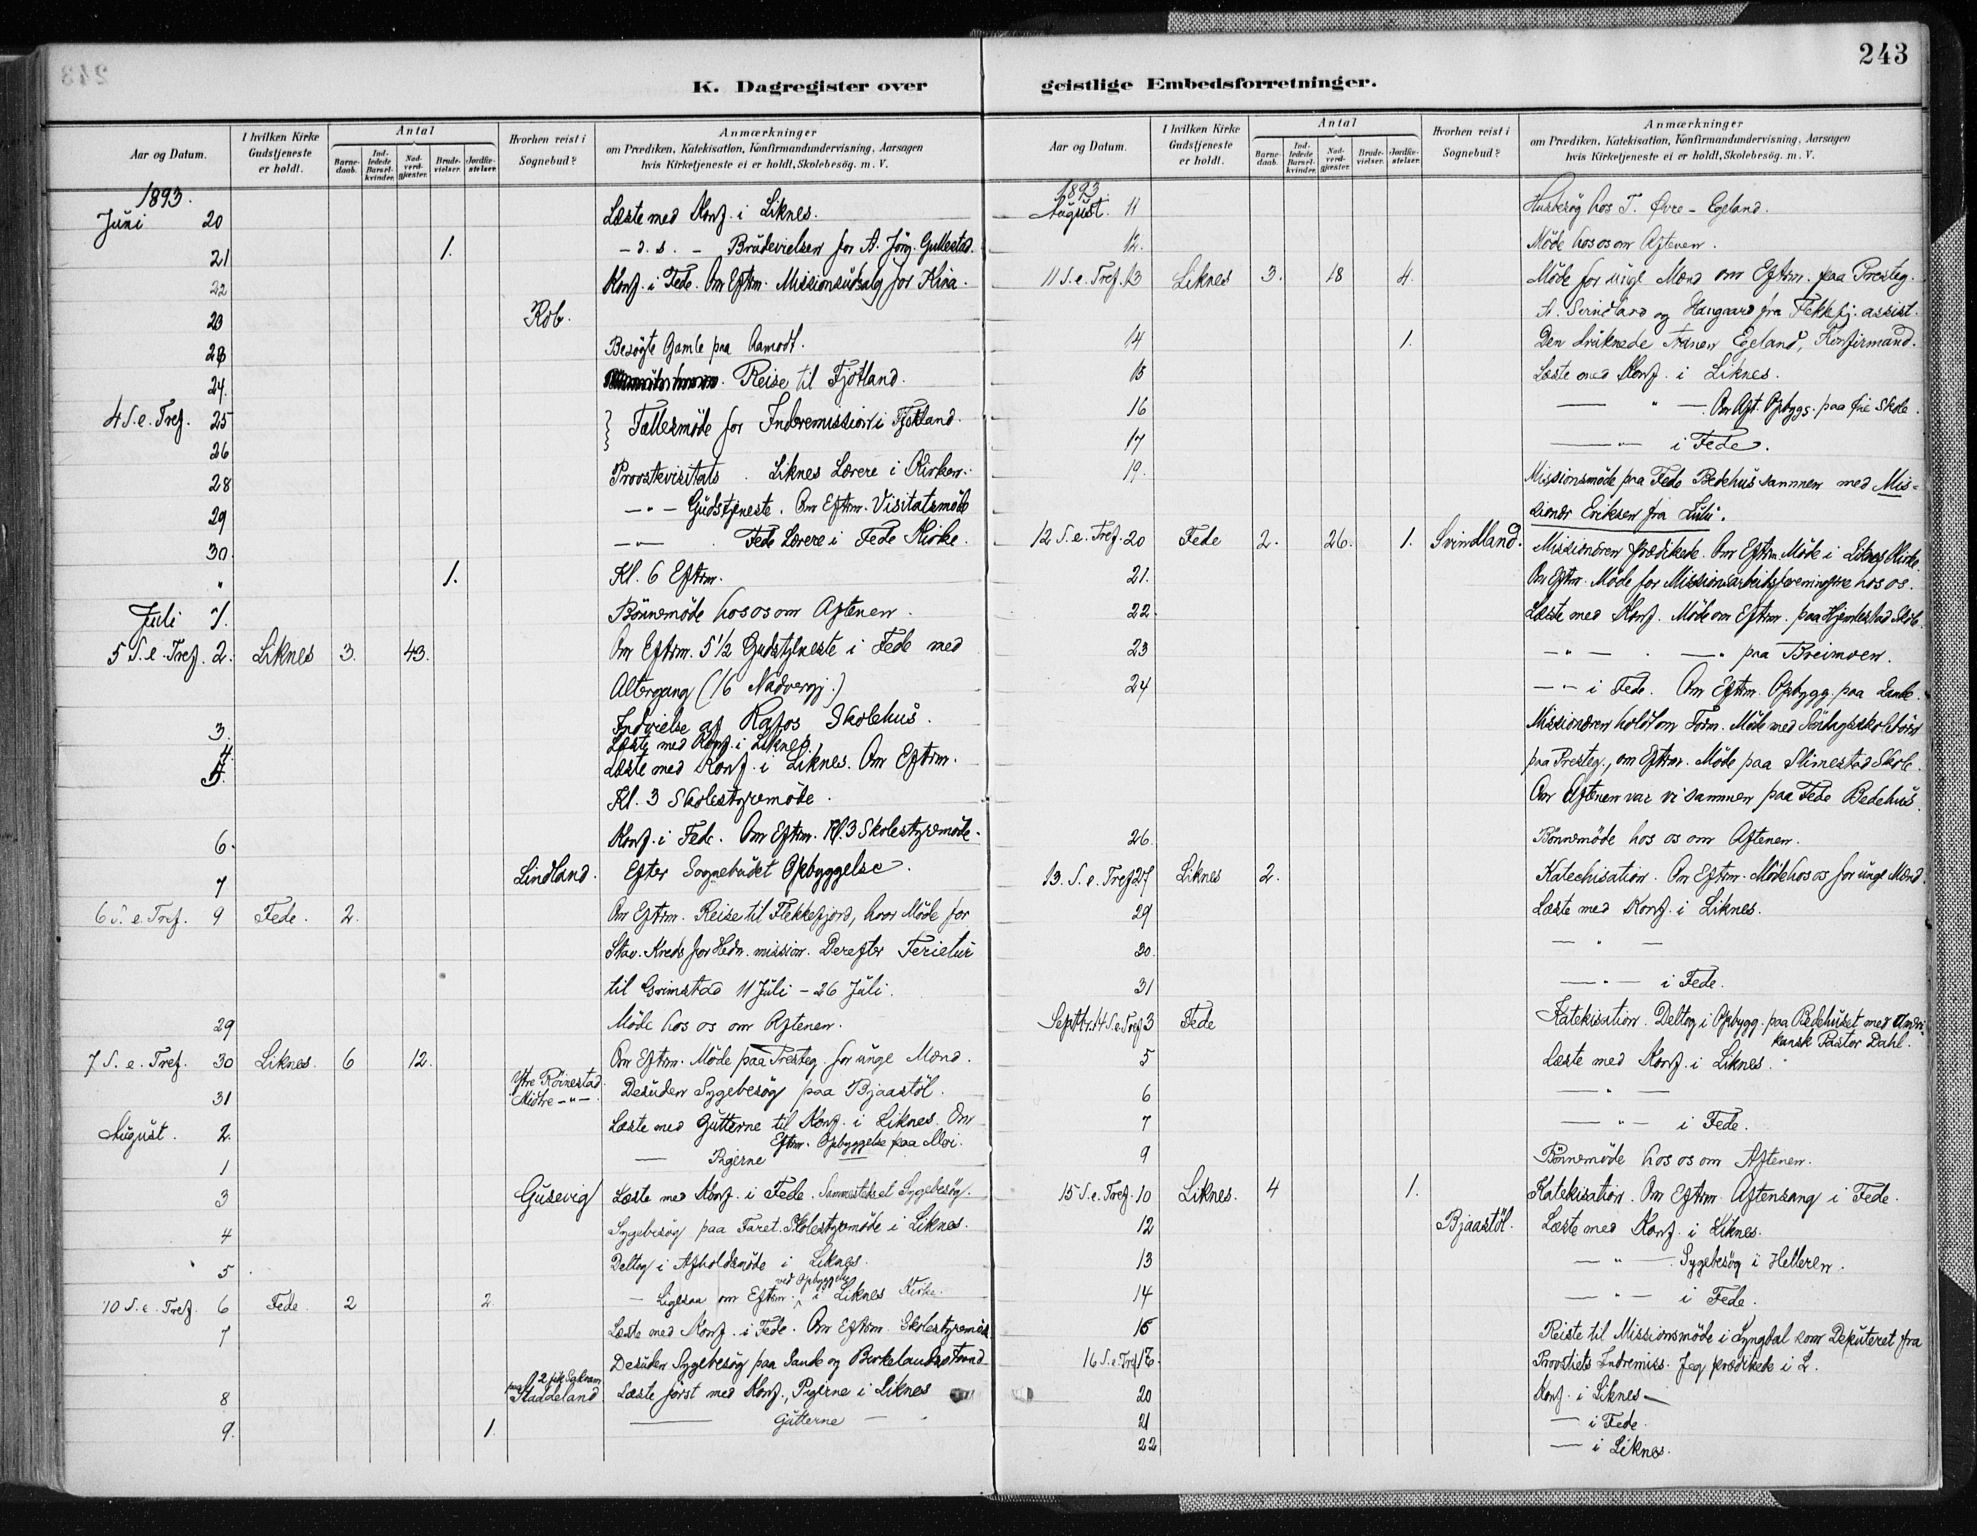 243
K. Dagregister over
geistlige Embedsforretninger.
Aar og Datum.
I hvilken Kirke Gudstjeneste er holdt.
Antal
Barnedaab.
Indledede Barselkvinder.
Nadverdgjæster.
Brudevielser.
Jordfæstelser.
Hvorhen reist i Sognebud?
Anmærkninger
om Prædiken, Katekisation, Konfirmandundervisning, Aarsagen
hvis Kirketjeneste ei er holdt, Skolebesøg. m. V.
1893.
Juni 20 Læste med Konf. i Liknes.
21 1. - d. s. - Brudevielsen for A. Jörg. Gullestad.
22 Konf. i Fede. Om Eftm. Missionsudsalg for Kina.
23 Rob.
23 Besögte Gamle paa Aamodt.
24. Reise til Fjotland.
4 S. e. Tref. 25 Fællesmöde for Indremission i Fjotland.
26
28 Provstevisitats. Liknes Lærere i Kirken.
29 - " - Gudstjeneste. Om Eftm. Visitatsmöde
30. - " - Fede Lærere i Fede Kirke.
" 1. Kl. 6 Eftm.
Juli 1. Bönnemöde hos os om Aftenen.
5 S. e. Tref. 2. Liknes 3. 43. Om Eftrm. 5 1/2 Gudstjeneste i Fede med
Altergang (16 Nadvergj.)
3. Indvielse af Rafos Skolehus.
4 Læste med Konf. i Liknes
5. Læste med Konf. i Liknes. Om Eftrm.
Kl. 3 Skolestyremöde.
6. Konf. i Fede. Om Eftrm. Kl. 3 Skolestyremöde.
7 Lindland. Efter Sognebudet Opbyggelse.
6 S. e. Tref. 9 Fede. 2. Om Eftrm. Reise til Flekkefjord, hvor Möde for
Stav. Kreds for Hedn. mission. Derefter Ferietur
til Grimstad 11 Juli - 26 Juli.
29 Möde hos os om Aftenen.
7 S. e. Tref. 30 Liknes. 6 12. Om Eftrm. Möde paa Presteg. for unge Mænd.
31 Ytre Röinestad Midtre - " - Desuden Sygebesög paa Bjaastöl.
August. 2. Læste med Gutterne til Konf. i Liknes. Om
Eftrm. Opbyggelse paa Moi.
1 — Pigerne —
3 Gusevig Læste med Konf. i Fede. Sammesteds et Sygebesög.
4 Sygebesög paa Faret. Skolestyremöde i Liknes.
5 Deltog i Afholdsmöde i Liknes.
ved Opbyggelse
10 S. e. Tref. 6 Fede. 2 2 - Ligesaa om Eftrm. i Liknes Kirke.
7 Læste med Konf. i Fede. Om Eftrm. Skolestyremöde
Desuden Sygebesög paa Sande og Birkelandsstrand
8 paa Staddeland Læste först med Konf., Pigerne i Liknes
9. 1. — Gutterne — "
1893.
August. 11 Husbesög hos T. Øvre-Egeland.
12. Möde hos os om Aftenen.
11 S. e. Tref. 13 Liknes 3. 18 4. Möde for unge Mænd om Eftrm. paa Presteg.
A. Svindland og Haugaard fra Flekkefj. assist.
14 1. Den druknede Egeland, Konfirmand.
15 Læste med Konf. i Liknes.
16 — " — Om Aft. Opbygg. paa Øie Skole.
17 — " — i Fede.
19. Missionsmöde paa Fede Bedehus sammen med Mis-
sionær Eriksen fra Zulu.
12 S. e. Tref. 20 Fede 2. 26. 1. Svindland. Missionæren prædikede. Om Eftrm. Möde i Liknes Kirke.
21. Om Eftrm. Möde for Missionsarbeidsforeningerne hos os.
22. Læste med Konf. Möde om Eftrm. paa Hjemlestad Skole.
23 - " - . — " paa Breimoen.
24 - " - i Fede. Om Eftrm. Opbygg. paa Sande.
Missionæren holdt om Form. Möde med Söndagsskolebörn
paa Presteg., om Eftrm. Möde paa Slimestad Skole.
Om Aftenen var vi sammen paa Fede Bedehus.
26. Bönnemöde hos os om Aftenen.
13. S. e. Tref. 27 Liknes 2. Katechisation. Om Eftrm. Möde hos os for unge Mænd.
29 Læste med Konf. i Liknes.
30. — " —
31 — " — i Fede.
Septbr. 14 S. e. Tref. 3 Fede Katekisation. Deltog i Opbygg. paa Bedehuset med Ameri-
kansk Pastor Dahl.
5 Læste med Konf. i Liknes.
6 — " —
7 — " — i Fede.
9 Bönnemöde hos os om Aftenen.
15 S. e. Tref. 10 Liknes. 4 1. Katekisation. Om Eftrm. Aftensang i Fede.
12 Bjaastöl. Læste med Konf. i Liknes.
13 — " — Sygebesög i Helleren.
14 — " — i Fede.
16 Reiste til Missionsmöde i Lyngdal som Deputeret fra
16 S. e. Tref. 17 Provstiets Indremiss. Jeg prædikede i L.
20 Konf. i Liknes —
21 — i Fede.
22 — i Liknes.